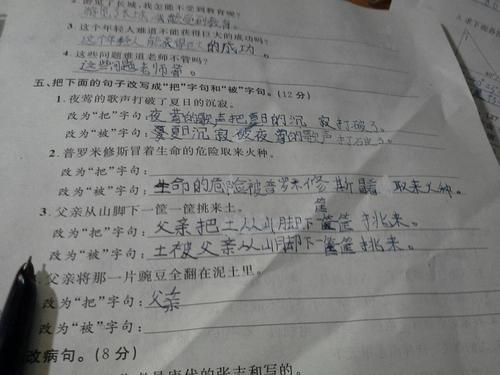 2. 游览了长城,我怎能不受到教育呢?
3. 这个年轻人难道不能获得巨大的成功吗?
这个年轻人能获得巨大的成功。
4. 这些问题难道老师不管吗?
这些问题老师管。
五、把下面的句子改写成“把”字句和“被”字句。(12分)
1. 夜莺的歌声打破了夏日的沉寂。
改为“把”字句:夜莺的歌声把夏日的沉寂打破了。
改为“被”字句:夏日沉寂被夜莺的歌声打破了。
2. 普罗米修斯冒着生命的危险取来火种。
改为“把”字句:
改为“被”字句:生命的危险被普罗米修斯冒 取来火种。
3. 父亲从山脚下一筐一筐挑来土。
改为“把”字句:父亲把土从山脚下筐筐挑来。
改为“被”字句:土被父亲从山脚下筐筐挑来。
父亲将那一片豌豆全翻在泥土里。
改为“把”字句:父亲
改为“被”字句:
改病句。(8分)